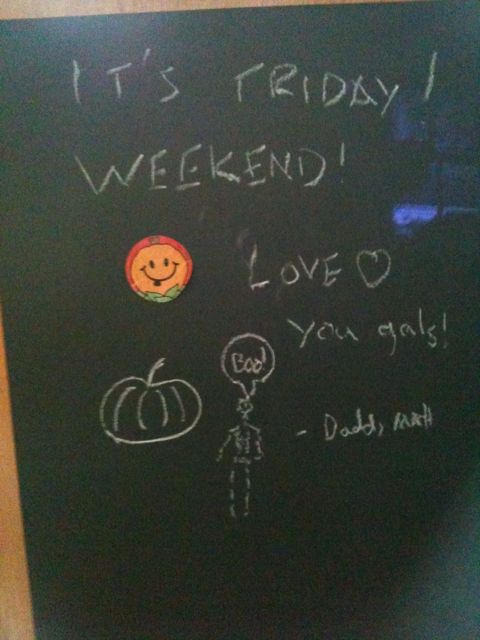 IT'S FRIDAY!
WEEKEND!
LOVE ♡
you gals!
Boo!
- Dadd, Matt